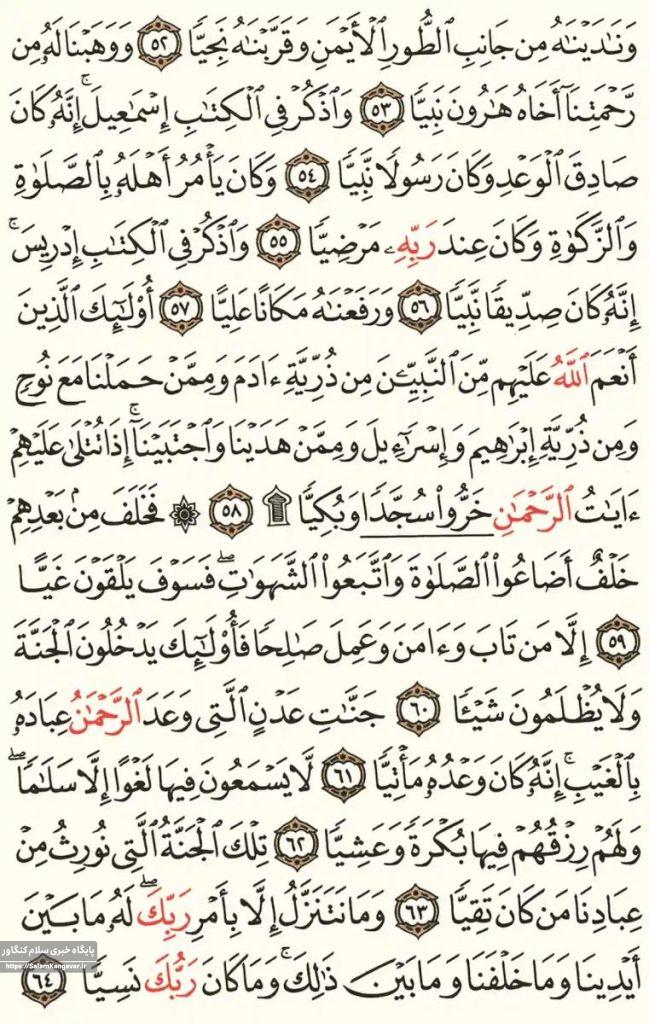 وَنَٰدَيۡنَٰهُ مِن جَانِبِ ٱلطُّورِ ٱلۡأَيۡمَنِ وَقَرَّبۡنَٰهُ نَجِيّٗا ٥٢ وَوَهَبۡنَا لَهُۥ مِن
رَّحۡمَتِنَآ أَخَاهُ هَٰرُونَ نَبِيّٗا ٥٣ وَٱذۡكُرۡ فِي ٱلۡكِتَٰبِ إِسۡمَٰعِيلَۚ إِنَّهُۥ كَانَ
صَادِقَ ٱلۡوَعۡدِ وَكَانَ رَسُولٗا نَّبِيّٗا ٥٤ وَكَانَ يَأۡمُرُ أَهۡلَهُۥ بِٱلصَّلَوٰةِ
وَٱلزَّكَوٰةِ وَكَانَ عِندَ رَبِّهِۦ مَرۡضِيّٗا ٥٥ وَٱذۡكُرۡ فِي ٱلۡكِتَٰبِ إِدۡرِيسَۚ
إِنَّهُۥ كَانَ صِدِّيقٗا نَّبِيّٗا ٥٦ وَرَفَعۡنَٰهُ مَكَانًا عَلِيًّا ٥٧ أُوْلَٰٓئِكَ ٱلَّذِينَ
أَنۡعَمَ ٱللَّهُ عَلَيۡهِم مِّنَ ٱلنَّبِيِّـۧنَ مِن ذُرِّيَّةِ ءَادَمَ وَمِمَّنۡ حَمَلۡنَا مَعَ نُوحٖ
وَمِن ذُرِّيَّةِ إِبۡرَٰهِيمَ وَإِسۡرَٰٓءِيلَ وَمِمَّنۡ هَدَيۡنَا وَٱجۡتَبَيۡنَآۚ إِذَا تُتۡلَىٰ عَلَيۡهِمۡ
ءَايَٰتُ ٱلرَّحۡمَٰنِ خَرُّواْۤ سُجَّدٗاۤ وَبُكِيّٗا۩ ٥٨ ۞ فَخَلَفَ مِنۢ بَعۡدِهِمۡ
خَلۡفٌ أَضَاعُواْ ٱلصَّلَوٰةَ وَٱتَّبَعُواْ ٱلشَّهَوَٰتِۖ فَسَوۡفَ يَلۡقَوۡنَ غَيًّا
٥٩ إِلَّا مَن تَابَ وَءَامَنَ وَعَمِلَ صَٰلِحٗا فَأُوْلَٰٓئِكَ يَدۡخُلُونَ ٱلۡجَنَّةَ
وَلَا يُظۡلَمُونَ شَيۡـٔٗا ٦٠ جَنَّٰتِ عَدۡنٍ ٱلَّتِي وَعَدَ ٱلرَّحۡمَٰنُ عِبَادَهُۥ
بِٱلۡغَيۡبِۚ إِنَّهُۥ كَانَ وَعۡدُهُۥ مَأۡتِيّٗا ٦١ لَّا يَسۡمَعُونَ فِيهَا لَغۡوًا إِلَّا سَلَٰمٗاۖ
وَلَهُمۡ رِزۡقُهُمۡ فِيهَا بُكۡرَةٗ وَعَشِيّٗا ٦٢ تِلۡكَ ٱلۡجَنَّةُ ٱلَّتِي نُورِثُ مِنۡ
عِبَادِنَا مَن كَانَ تَقِيّٗا ٦٣ وَمَا نَتَنَزَّلُ إِلَّا بِأَمۡرِ رَبِّكَۖ لَهُۥ مَا بَيۡنَ
أَيۡدِينَا وَمَا خَلۡفَنَا وَمَا بَيۡنَ ذَٰلِكَۚ وَمَا كَانَ رَبُّكَ نَسِيّٗا ٦٤
پایگاه خبری سلام کنگاور
https://SalamKangavar.ir